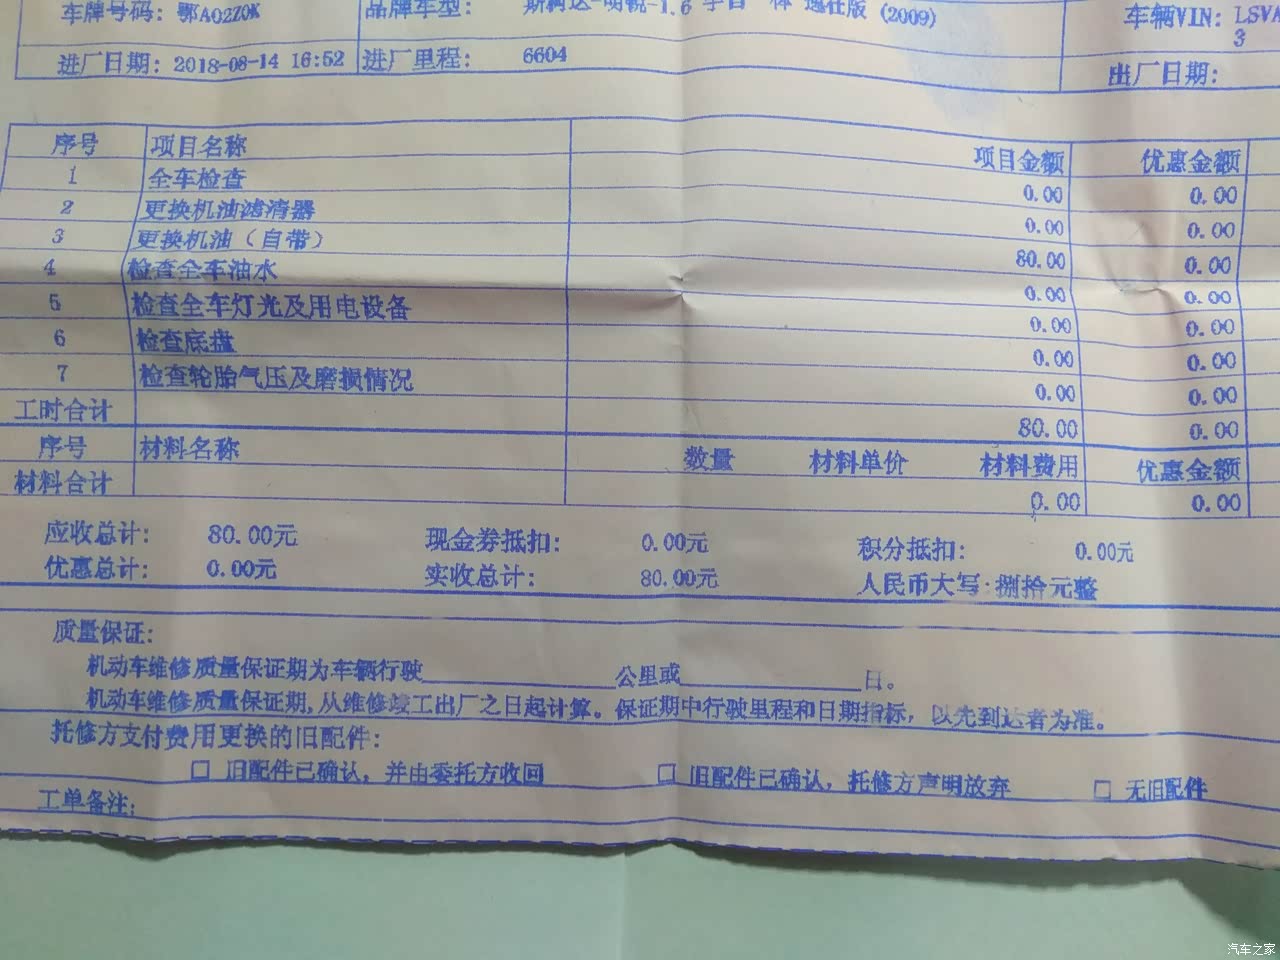 车牌号码: 鄂A02Z0K 品牌车型: 斯柯达-明锐-1.6 手自一体 逸仕版 (2009) 车辆VIN: LSVA
3
进厂日期: 2018-08-14 16:52 进厂里程: 6604 出厂日期:
序号 项目名称 项目金额 优惠金额
1 全车检查 0.00 0.00
2 更换机油滤清器 0.00 0.00
3 更换机油（自带） 80.00 0.00
4 检查全车油水 0.00 0.00
5 检查全车灯光及用电设备 0.00 0.00
6 检查底盘 0.00 0.00
7 检查轮胎气压及磨损情况 0.00 0.00
工时合计 80.00 0.00
序号 材料名称 数量 材料单价 材料费用 优惠金额
材料合计 0.00 0.00
应收总计: 80.00元 现金券抵扣: 0.00元 积分抵扣: 0.00元
优惠总计: 0.00元 实收总计: 80.00元 人民币大写:捌拾元整
质量保证:
机动车维修质量保证期为车辆行驶 公里或 日。
机动车维修质量保证期,从维修竣工出厂之日起计算。保证期中行驶里程和日期指标，以先到达者为准。
托修方支付费用更换的旧配件:
□ 旧配件已确认，并由委托方收回 □ 旧配件已确认，托修方声明放弃 □ 无旧配件
工单备注:
汽车之家